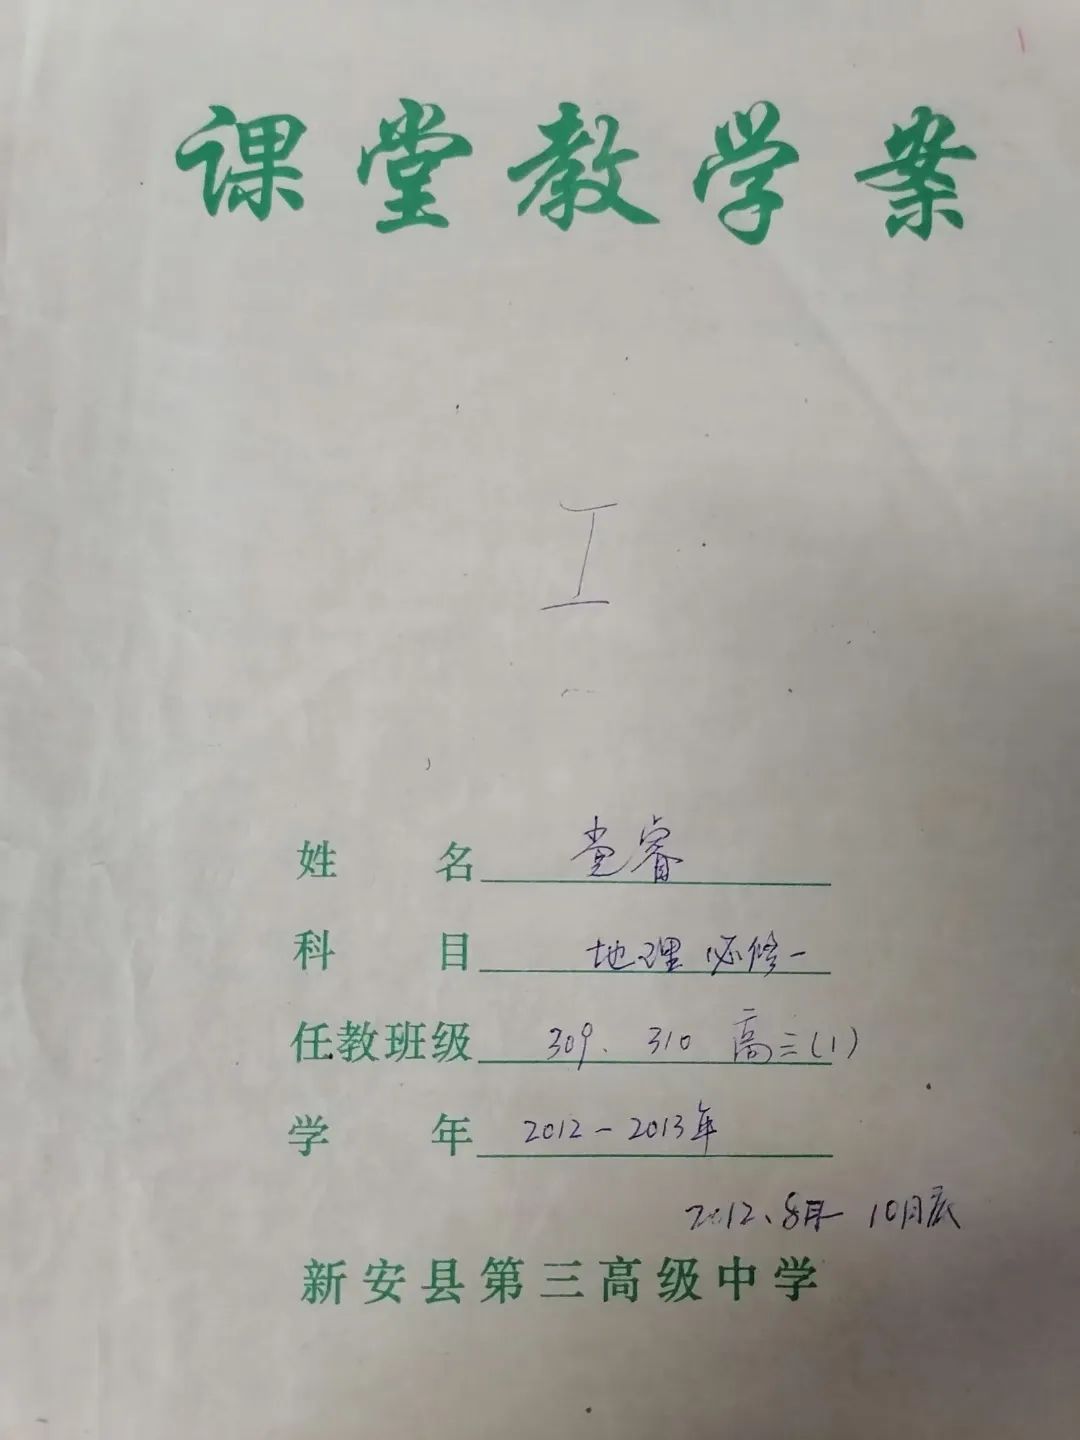 课堂教学案
I
姓名 党睿
科目 地理 必修一
任教班级 309、310 高三(1)
学年 2012-2013年
2012、8月 10月底
新安县第三高级中学